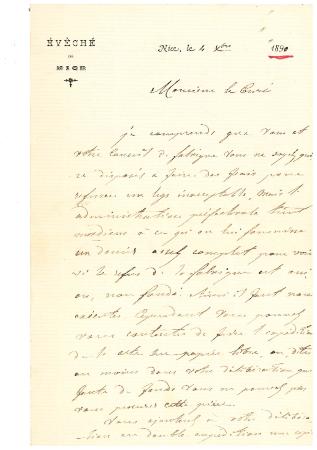 ÉVÊCHÉ
DE
NICE
Nice, le 4 Xbre 1890
Monsieur le Curé
Je comprends que vous et
votre Conseil de fabrique vous ne soyez guère
disposés à faire des frais pour
refuser un legs inacceptable, mais l'
administration préfectorale tient
mordicus à ce qu'on lui fournisse
un dossier complet pour voir
si le refus de la fabrique est oui
ou, non fondé. Ainsi il faut nous
exécuter. Cependant vous pouvez
vous contenter de faire l'expédition
de l'acte en papier libre, ou dites
au moins dans votre délibération que
faute de fonds vous ne pouvez pas
vous procurer cette pièce.
Vous ajouterez à votre délibéra-
tion en double expédition une copie